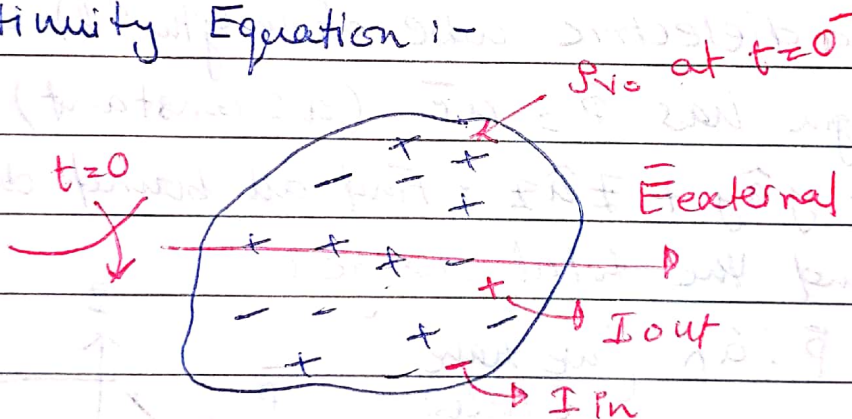 tinuity Equation :-
ρv₀ at t=0⁻
t=0
E̅external
I out
I in